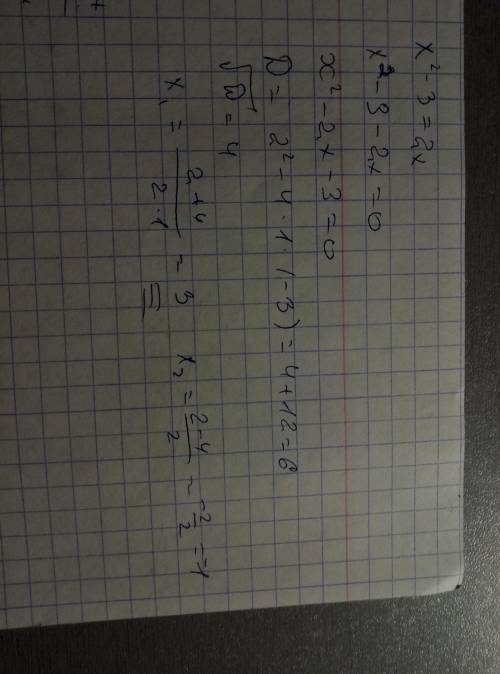 x² - 3 = 2x
x² - 3 - 2x = 0
x² - 2x - 3 = 0
D = 2² - 4 · 1 · (-3) = 4 + 12 = 6
√D = 4
x₁ = (2+4)/(2·1) = 3 x₂ = (2-4)/2 = -2/2 = -1